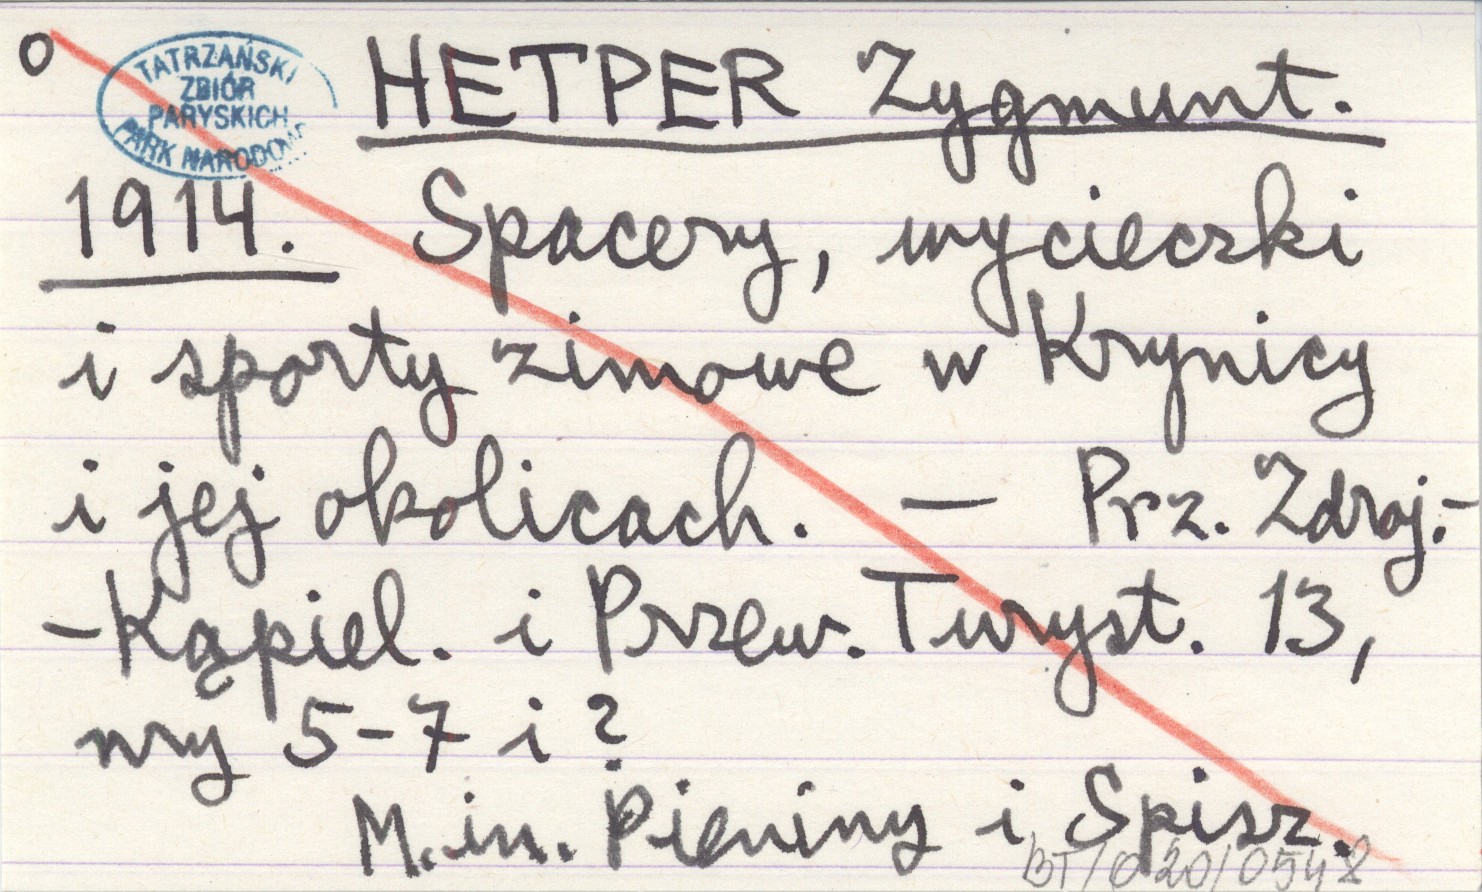 O
TATRZAŃSKI
ZBIÓR
PARYSKICH
PARK NARODOW
HETPER Zygmunt.
1914. Spacery, wycieczki
i sporty zimowe w Krynicy
i jej okolicach. — Prz. Zdroj.-
-Kąpiel. i Przew. Turyst. 13,
nry 5-7 i ?
M.in. Pieniny i Spisz.
BT/020/0548